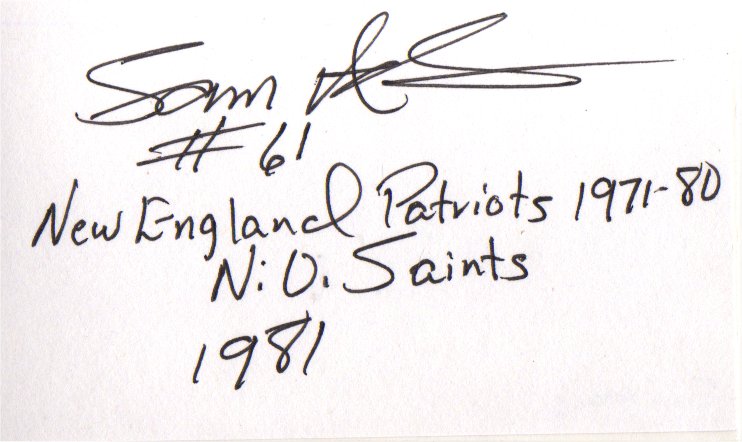 Sam
#61
New England Patriots 1971-80
N.O. Saints
1981